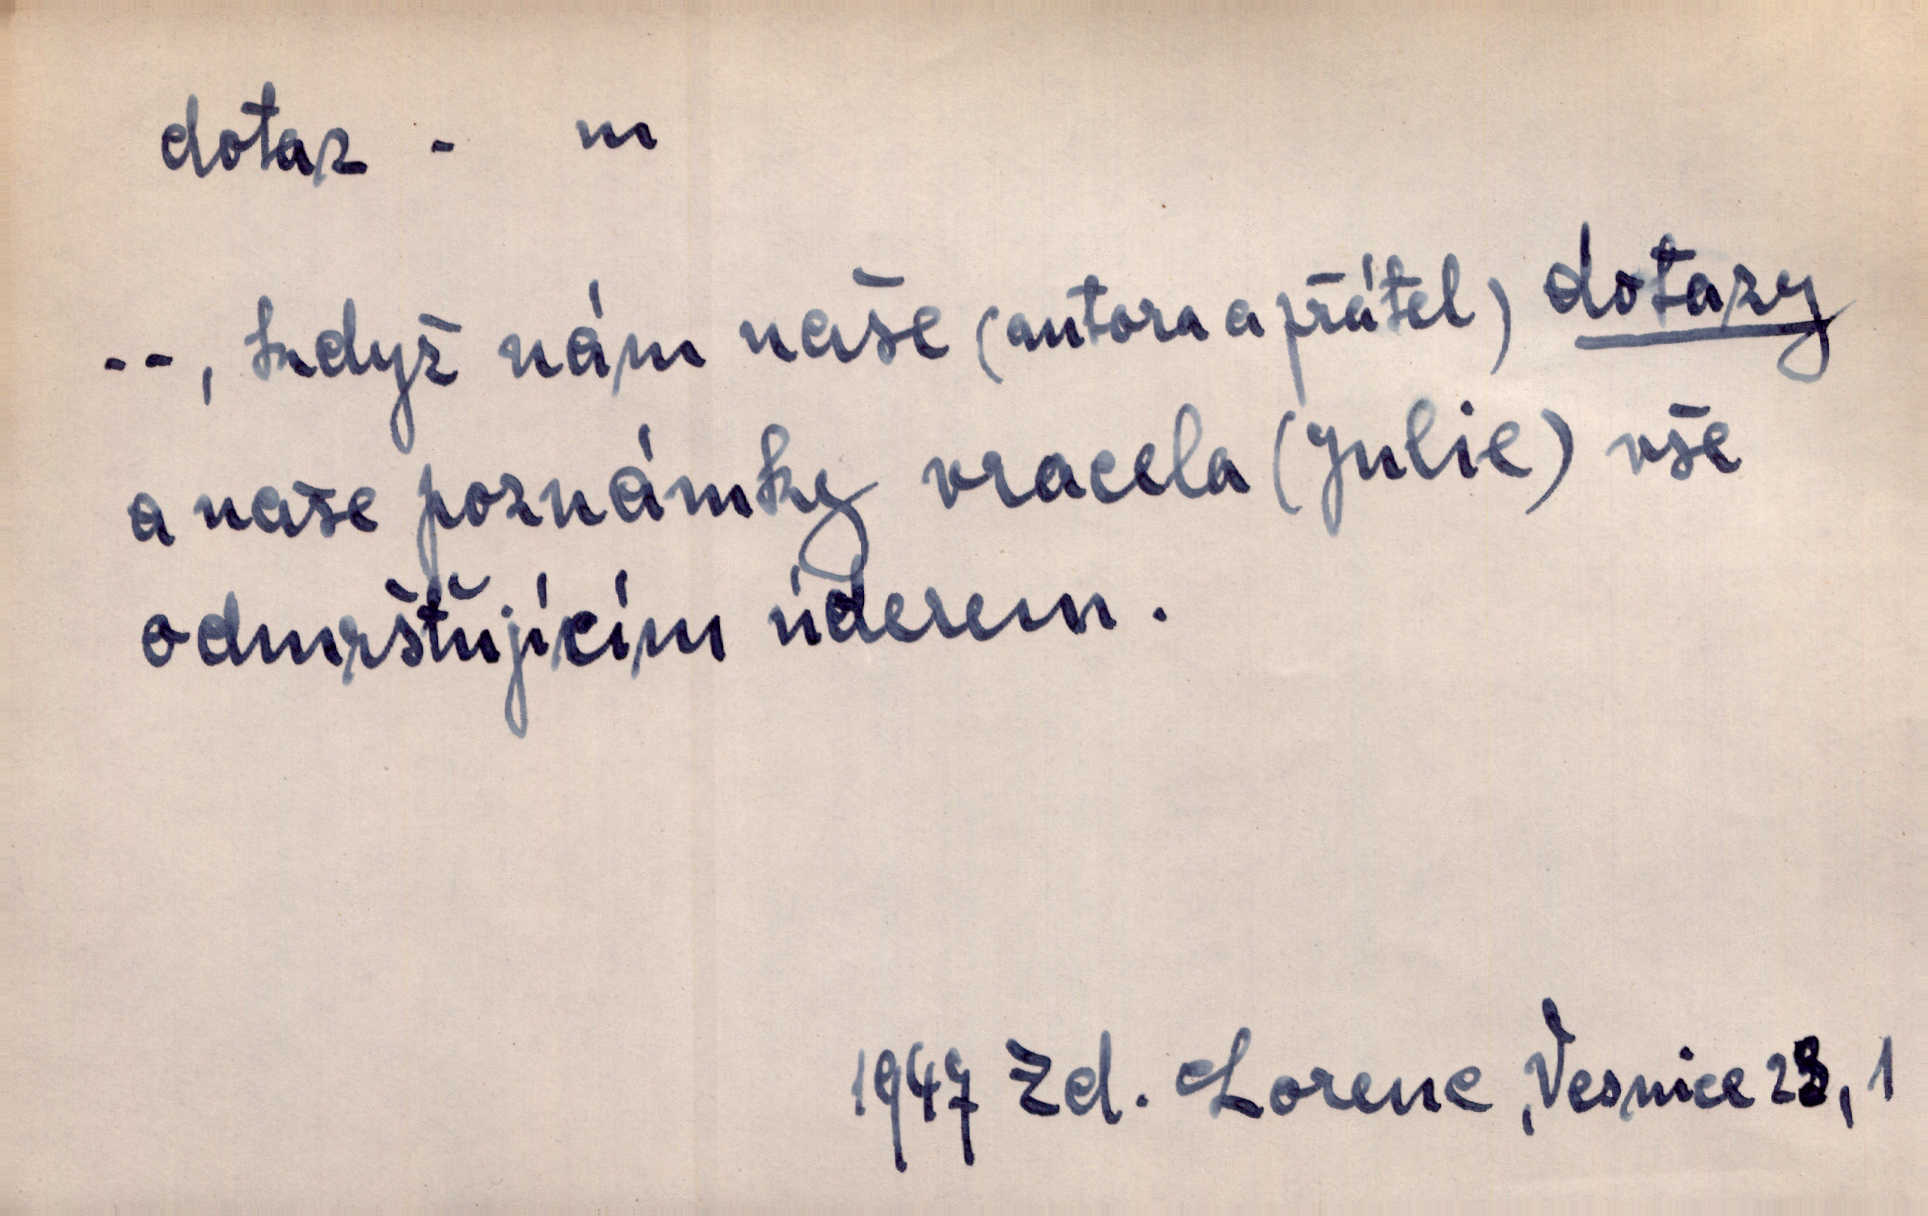 dotaz - m
--, když nám naše (autora a přátel) dotazy
a naše poznámky vracela (Julie) vše
odmršťujícím úderem.
1947 Zd. Lorenc, Vesnice 23, 1